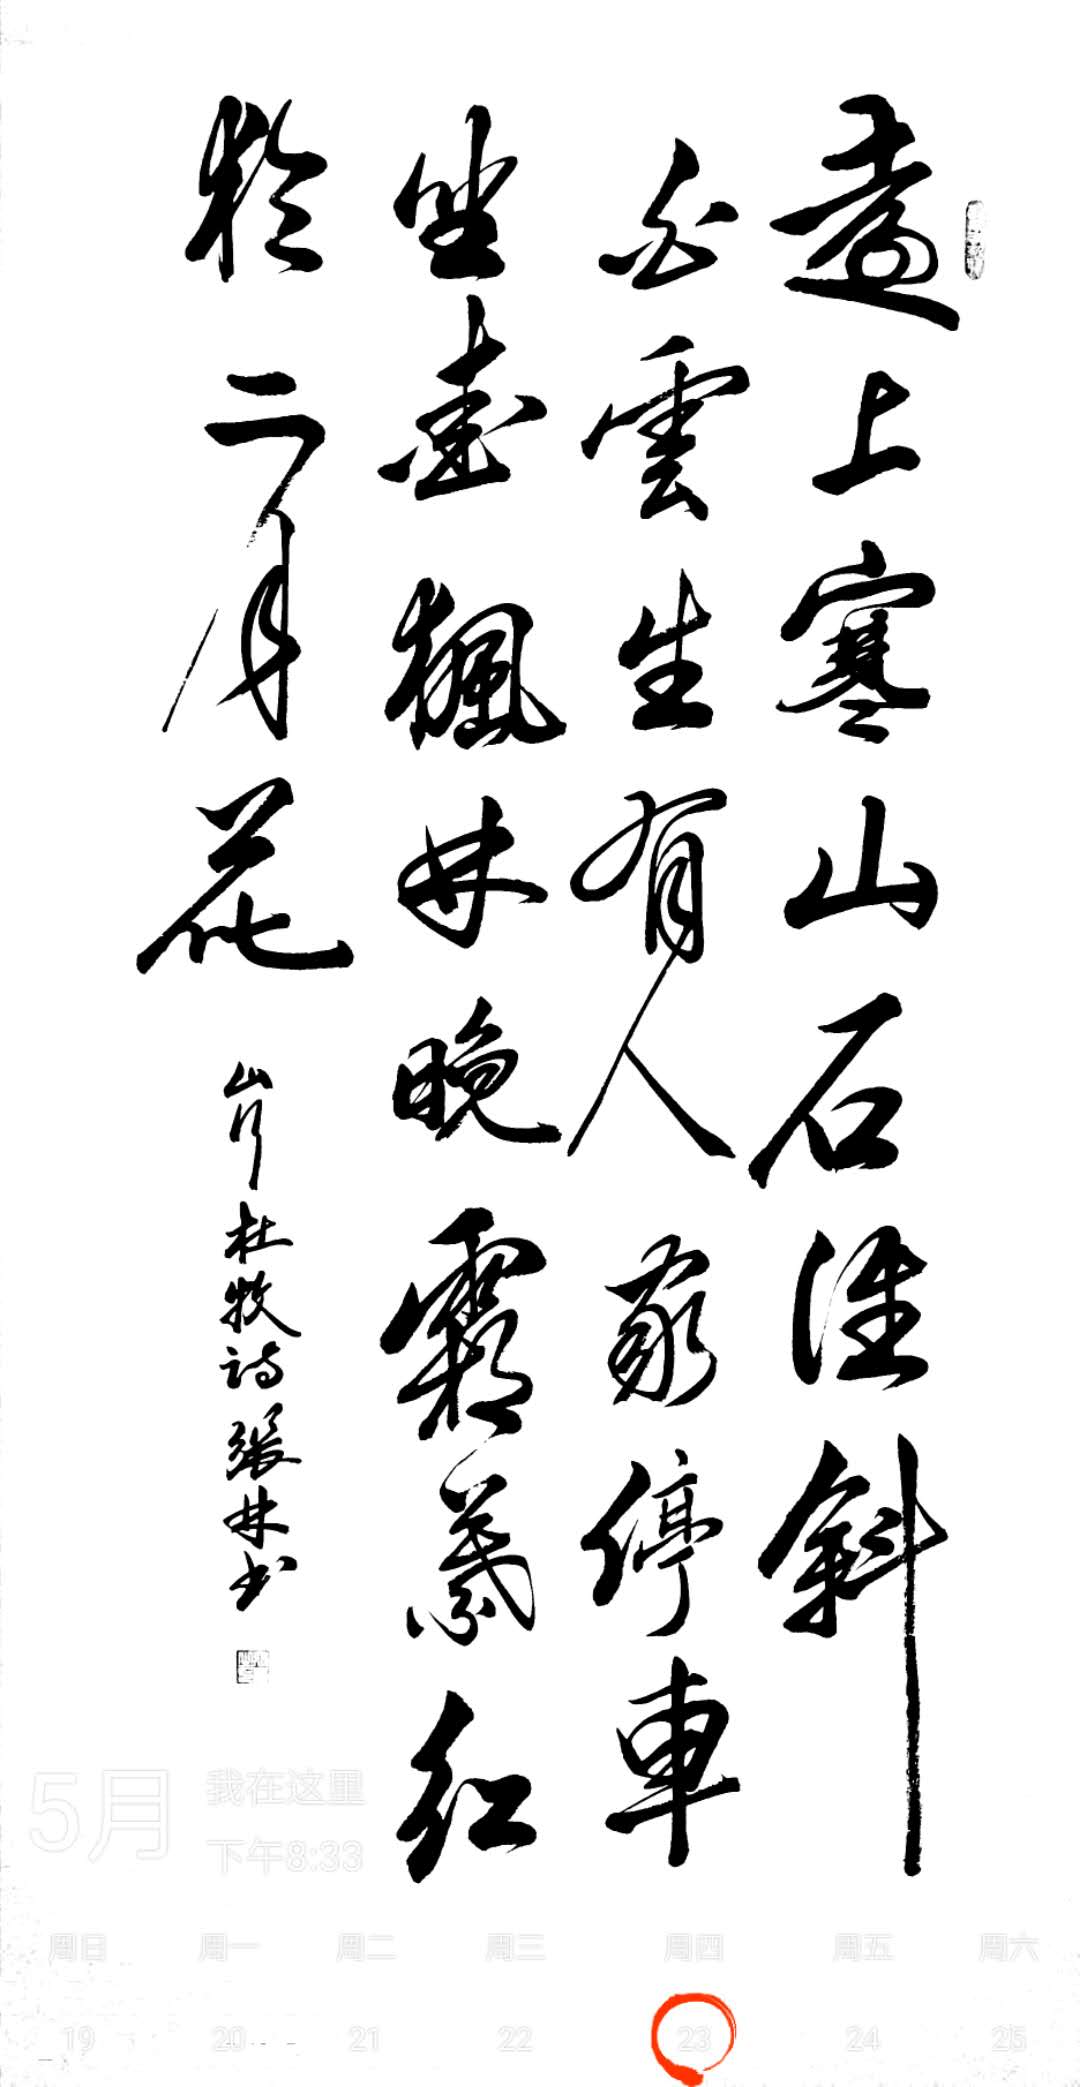 遠上寒山石徑斜
白雲生有人家停車
坐愛楓林晚霜葉红
於二月花
山行杜牧诗張林书
5月
我在这里
下午8:33
周日 周一 周二 周三 周四 周五 周六
19 20 21 22 23 24 25